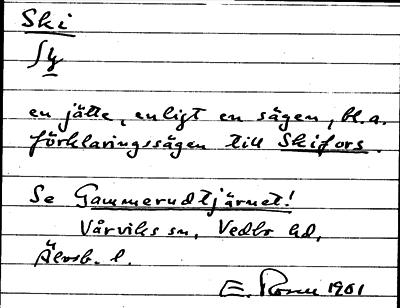 Ski
en jätte, enligt en sägen, bl.a.
förklaringssägen till Skifors.
Se Gammerudtjärnet!
Vårviks sn, Vedbo hd,
Älvsb. l.
E. 1901